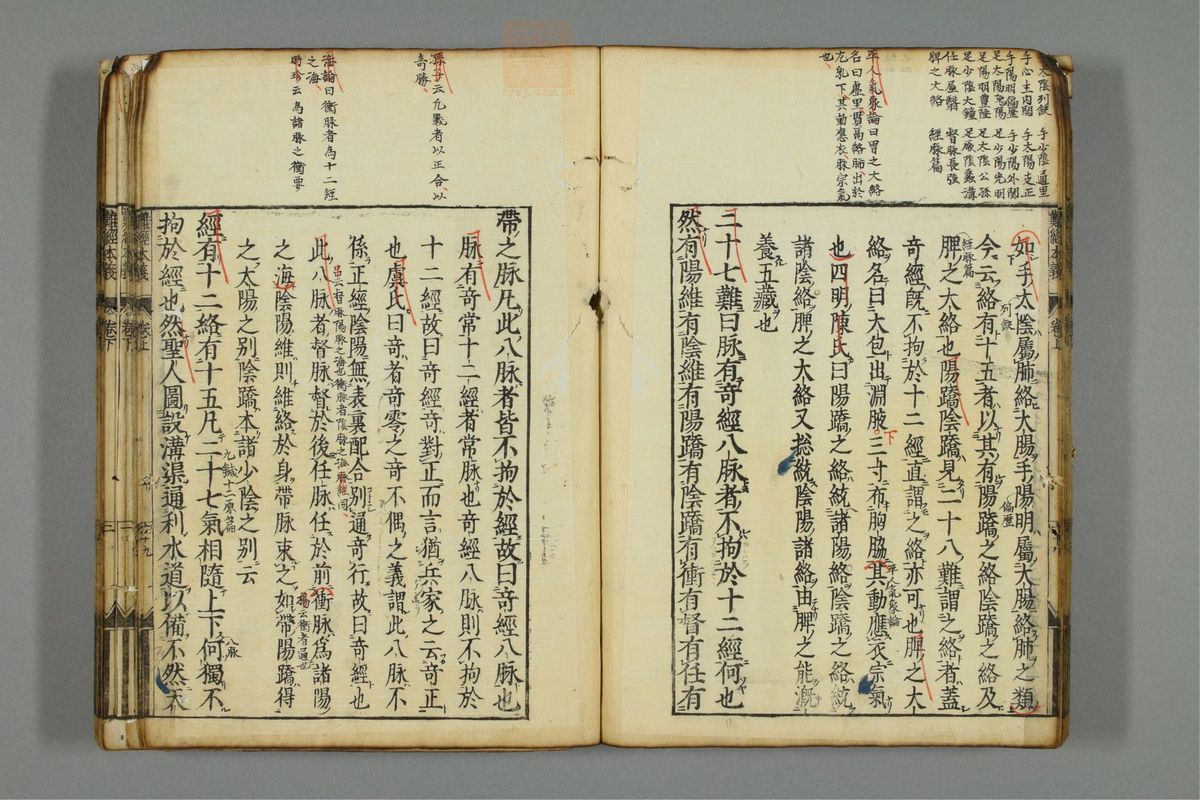 太陰列缺　手少陰通里
手心主内関　手太陽支正
手陽明偏歴　手少陽外関
足太陽飛陽　足少陽光明
足陽明豊隆　足太陰公孫
足少陰大鐘　足厥陰蠡溝
任脉屏翳　督脉長強
脾之大絡　經脉篇
平人氣象論曰胃之大絡
名曰虚里貫膈絡肺出於
左乳下其動應衣脉宗氣
也
如手太陰屬肺絡大腸手陽明屬大腸絡肺之類
列缺
偏歴
今云絡有十五者以其有陽蹻之絡陰蹻之絡及
經脉篇
脾之大絡也陽蹻陰蹻見二十八難謂之絡者蓋
奇經既不拘於十二經直謂之絡亦可也脾之大
絡名曰大包出淵腋三寸布胸脇其動應衣宗氣
下
平人氣象論
也四明陳氏曰陽蹻之絡統諸陽絡陰蹻之絡統
諸陰絡脾之大絡又總統陰陽諸絡由脾之能漑
養五藏也
二十七難曰脉有奇經八脉者不拘於十二經何也
然有陽維有陰維有陽蹻有陰蹻有衝有督有任有
難經本義　卷上
孫子云凡戰者以正合以
奇勝
海論曰衝脉者為十二經
之海
時珍云為諸脉之衝要
帶之脉凡此八脉者皆不拘於經故曰奇經八脉也
脉有奇常十二經者常脉也奇經八脉則不拘於
十二經故曰奇經奇對正而言猶兵家之云奇正
也虞氏曰奇者奇零之奇不偶之義謂此八脉不
係正經陰陽無表裏配合別通奇行故曰奇經也
此八脉者督脉督於後任脉任於前衝脉為諸陽
之海陰陽維則維絡於身帶脉束之如帶陽蹻得
楊云衝者通也
之太陽之別陰蹻本諸少陰之別云
九鍼十二原篇
經有十二絡有十五凡二十七氣相隨上下何獨不
八脉
拘於經也然聖人圖設溝渠通利水道以備不然天
難經本義　卷上
難經本義　卷下